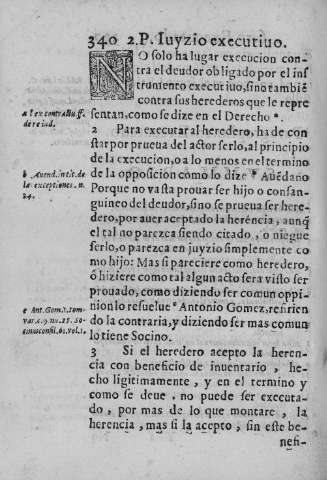 340 2.P. Iuyzio executiuo.
NO solo ha lugar execucion con-
tra el deudor obligado por el ins
trumento executiuo, sino tambiē
contra sus herederos que le repre
sentan, como se dize en el Derecho ª.
a l. ex contractu. ff.
de re iud.
2 Para executar al heredero, ha de con
star por prueua del actor serlo, al principio
de la execucion, o a lo menos en el termino
de la opposicion como lo dize ᵇ Auēdaño
b Auend. in tit. de
la exceptiones. n.
24.
Porque no vasta prouar ser hijo o consan-
guineo del deudor, sino se prueua ser here-
dero, por auer aceptado la herēncia, aunq̄
el tal no parezca siendo citado, o niegue
serlo, o parezca en juyzio simplemente co
mo hijo: Mas si pareciere como heredero,
ó hiziere como tal algun acto sera visto ser
prouado, como diziendo ser comun oppi-
nion lo resuelue ᶜ Antonio Gomez, refiriēn
do la contraria, y diziendo ser mas comun
lo tiene Socino.
c Ant. Gom. 1. tom.
var. c. 9. nu. 25. So-
cinus consil. 61. vol. 1.
3 Si el heredero acepto la heren-
cia con beneficio de inuentario, he-
cho ligitimamente, y en el termino y
como se deue. no puede ser executa-
do, por mas de lo que montare, la
herencia, mas si la acepto, sin este be-
nefi-